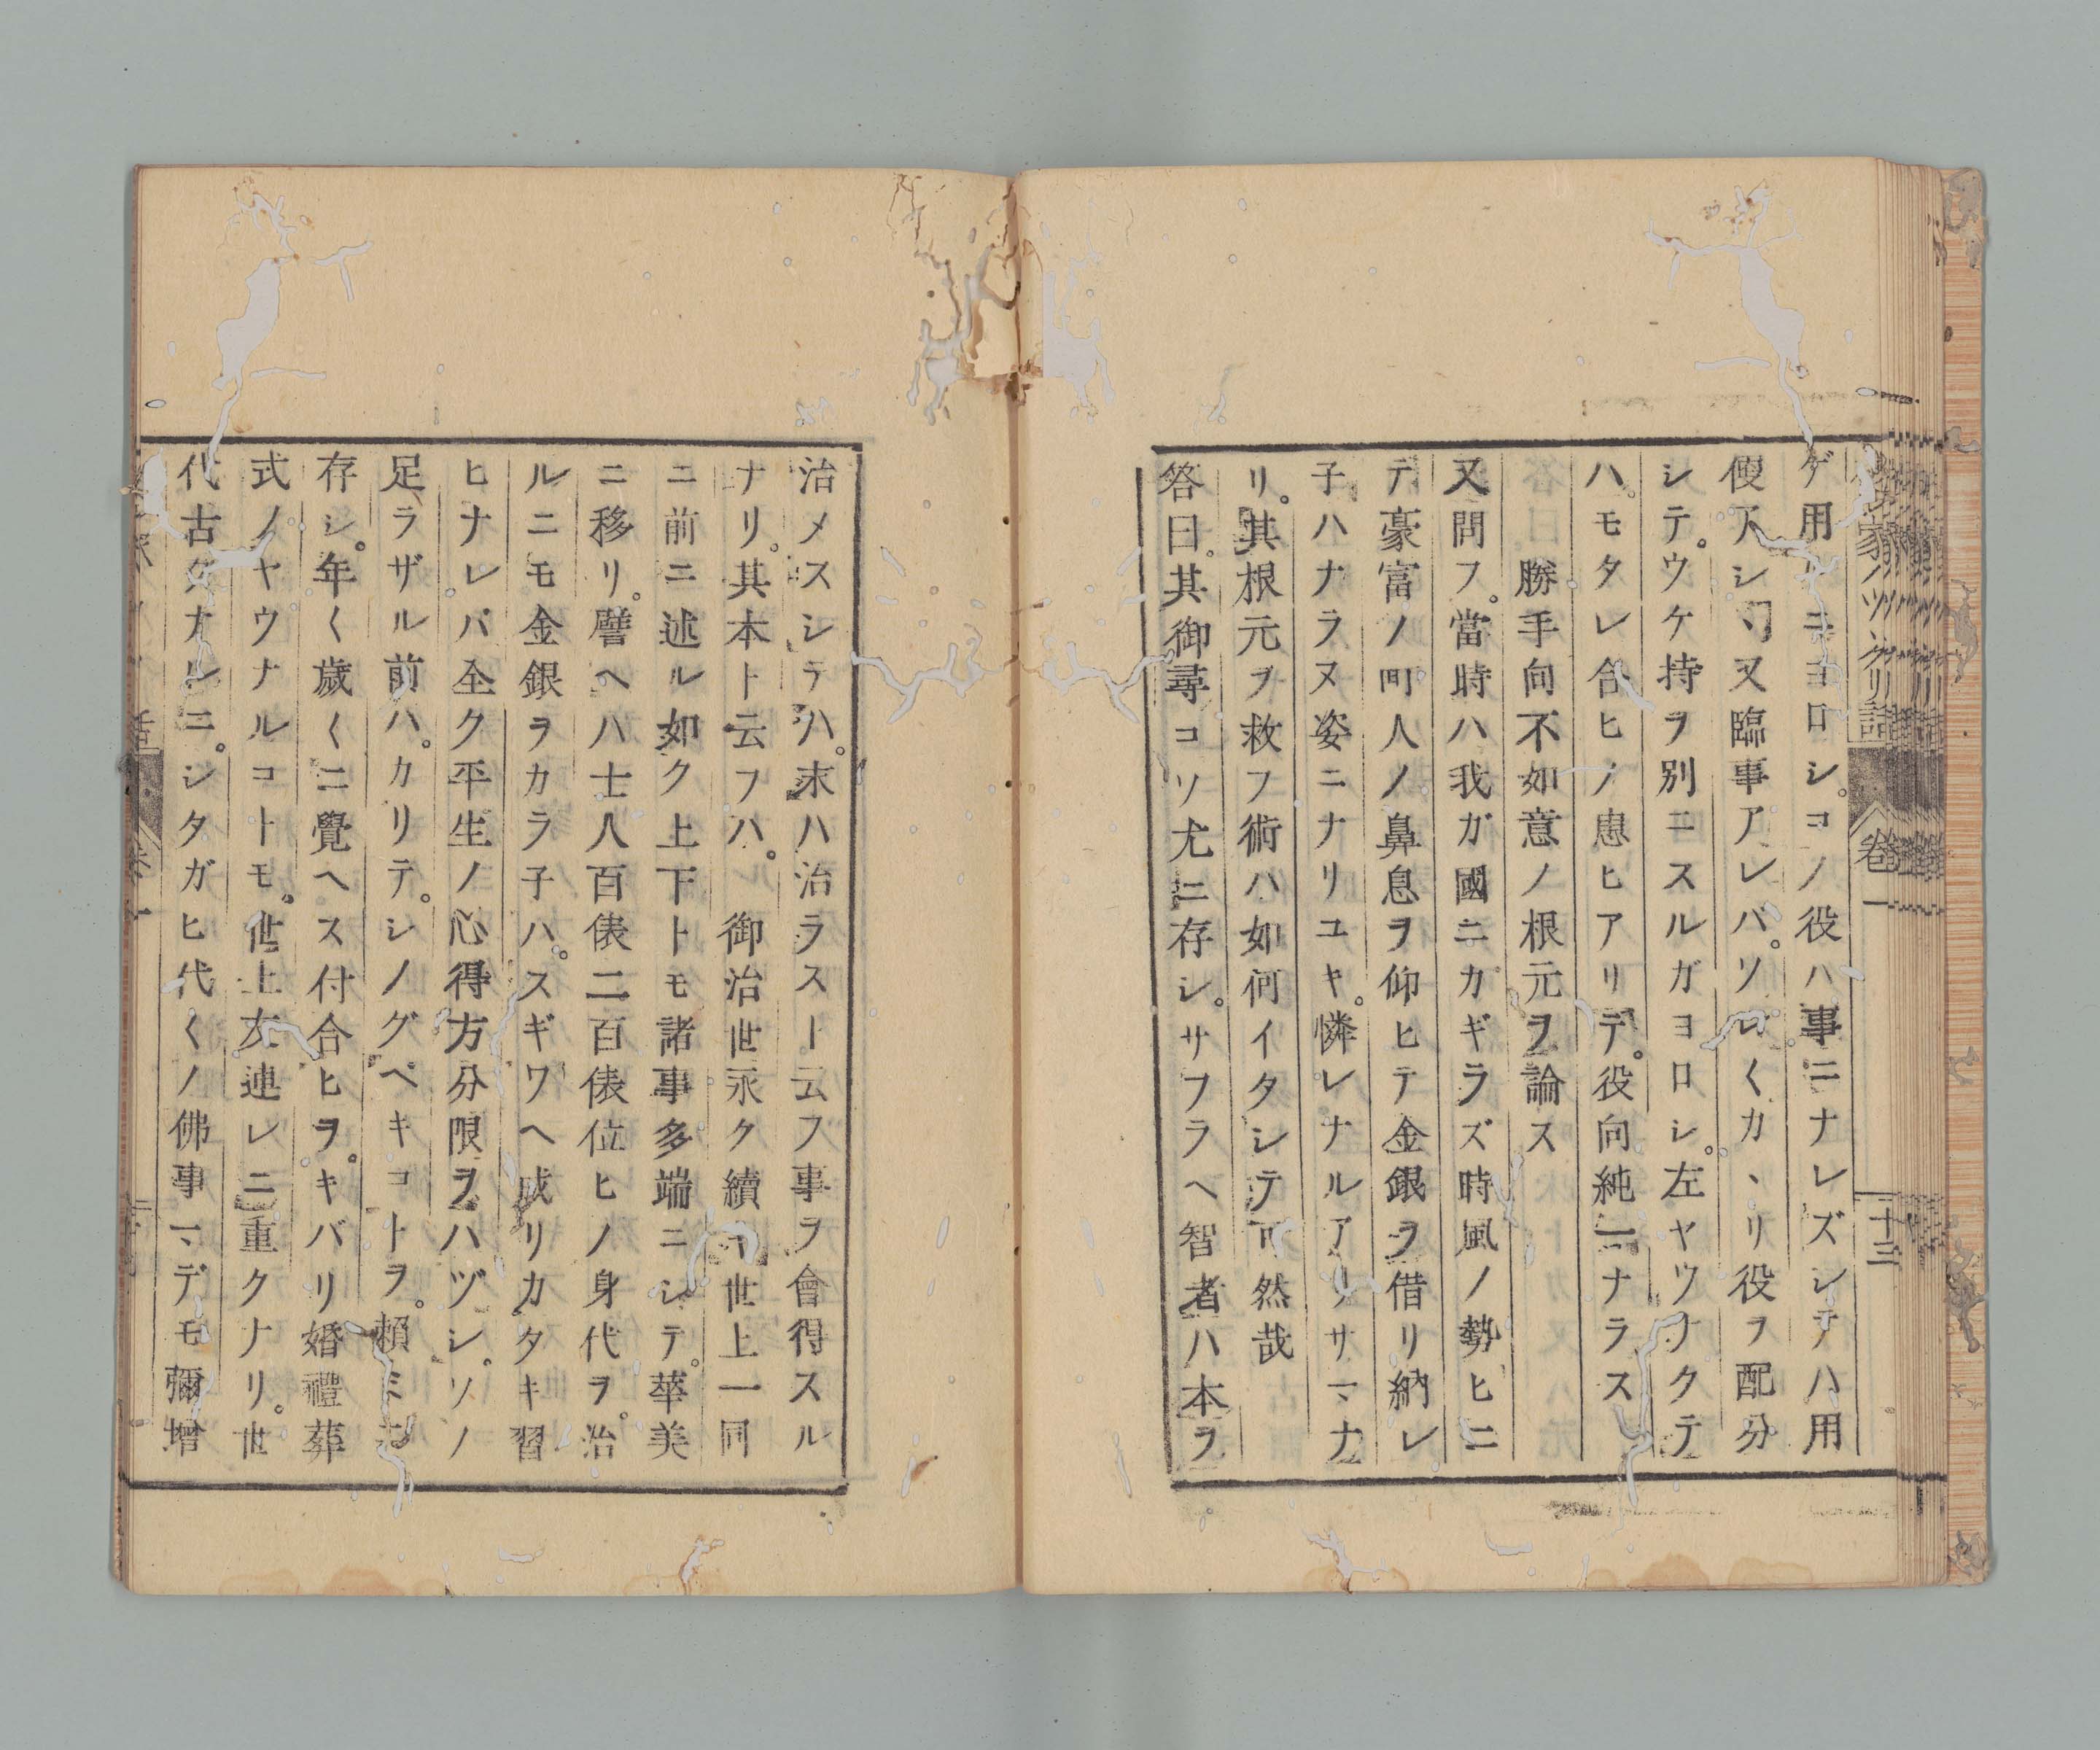 ゲ用ルニヨロシ。コノ役ハ事ニナレズシテハ用
便アシヽ又臨事アレバ。ソレ〱カヽリ役ヲ配分
シテ。ウケ持ヲ別ニスルガヨロシ。左ヤウナクテ
ハ。モタレ合ヒノ患ヒアリテ。役向純一ナラス
勝手向不如意ノ根元ヲ論ス
又問フ。當時ハ我ガ國ニカギラズ時風ノ勢ヒニ
テ豪富ノ町人ノ鼻息ヲ仰ヒテ金銀ヲ借リ納レ
子ハナラヌ姿ニナリユキ。憐レナルアリサマナ
リ。其根元ヲ救フ術ハ如何イタシテ可然哉
答曰。其御尋コソ尤ニ存シ。サフラヘ智者ハ本ヲ
家ノツクリ話 卷一 十三
治メスシテハ。末ハ治ラスト云フ事ヲ會得スル
ナリ。其本ト云フハ。御治世永ク續キ世上一同
ニ前ニ述ル如ク上下トモ諸事多端ニシテ。華美
ニ移リ。譬ヘハ士人百俵二百俵位ヒノ身代ヲ。治
ルニモ金銀ヲカラ子ハ。スギワヘ成リカタキ習
ヒナレバ全ク平生ノ心得方分限ヲハヅシ。ソノ
足ラザル前ハ。カリテ。シノグベキコトヲ。頼ミ
存シ。年〱歳〱ニ覺ヘス付合ヒヲ。キバリ婚禮葬
式ノヤウナルコトモ。世上友連レニ重クナリ。世
代古久ナルニ。シタガヒ代〱ノ佛事マデモ彌增
卷一